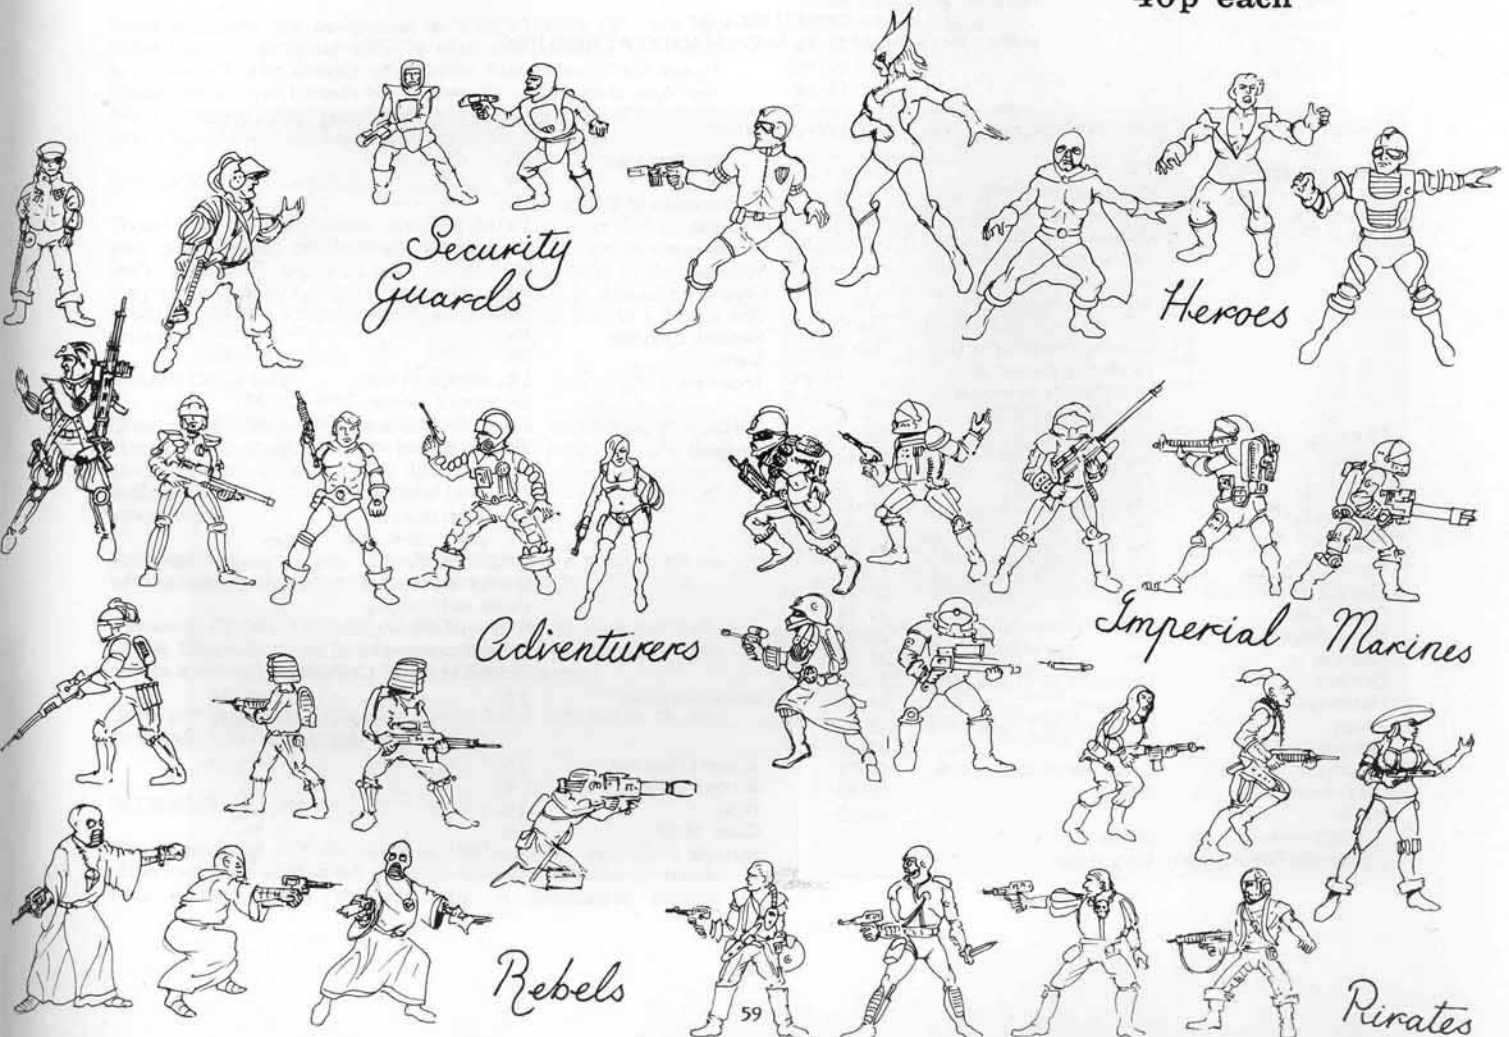 40p each
Security
Guards
Heroes
Adventurers
Imperial Marines
Rebels
59
Pirates